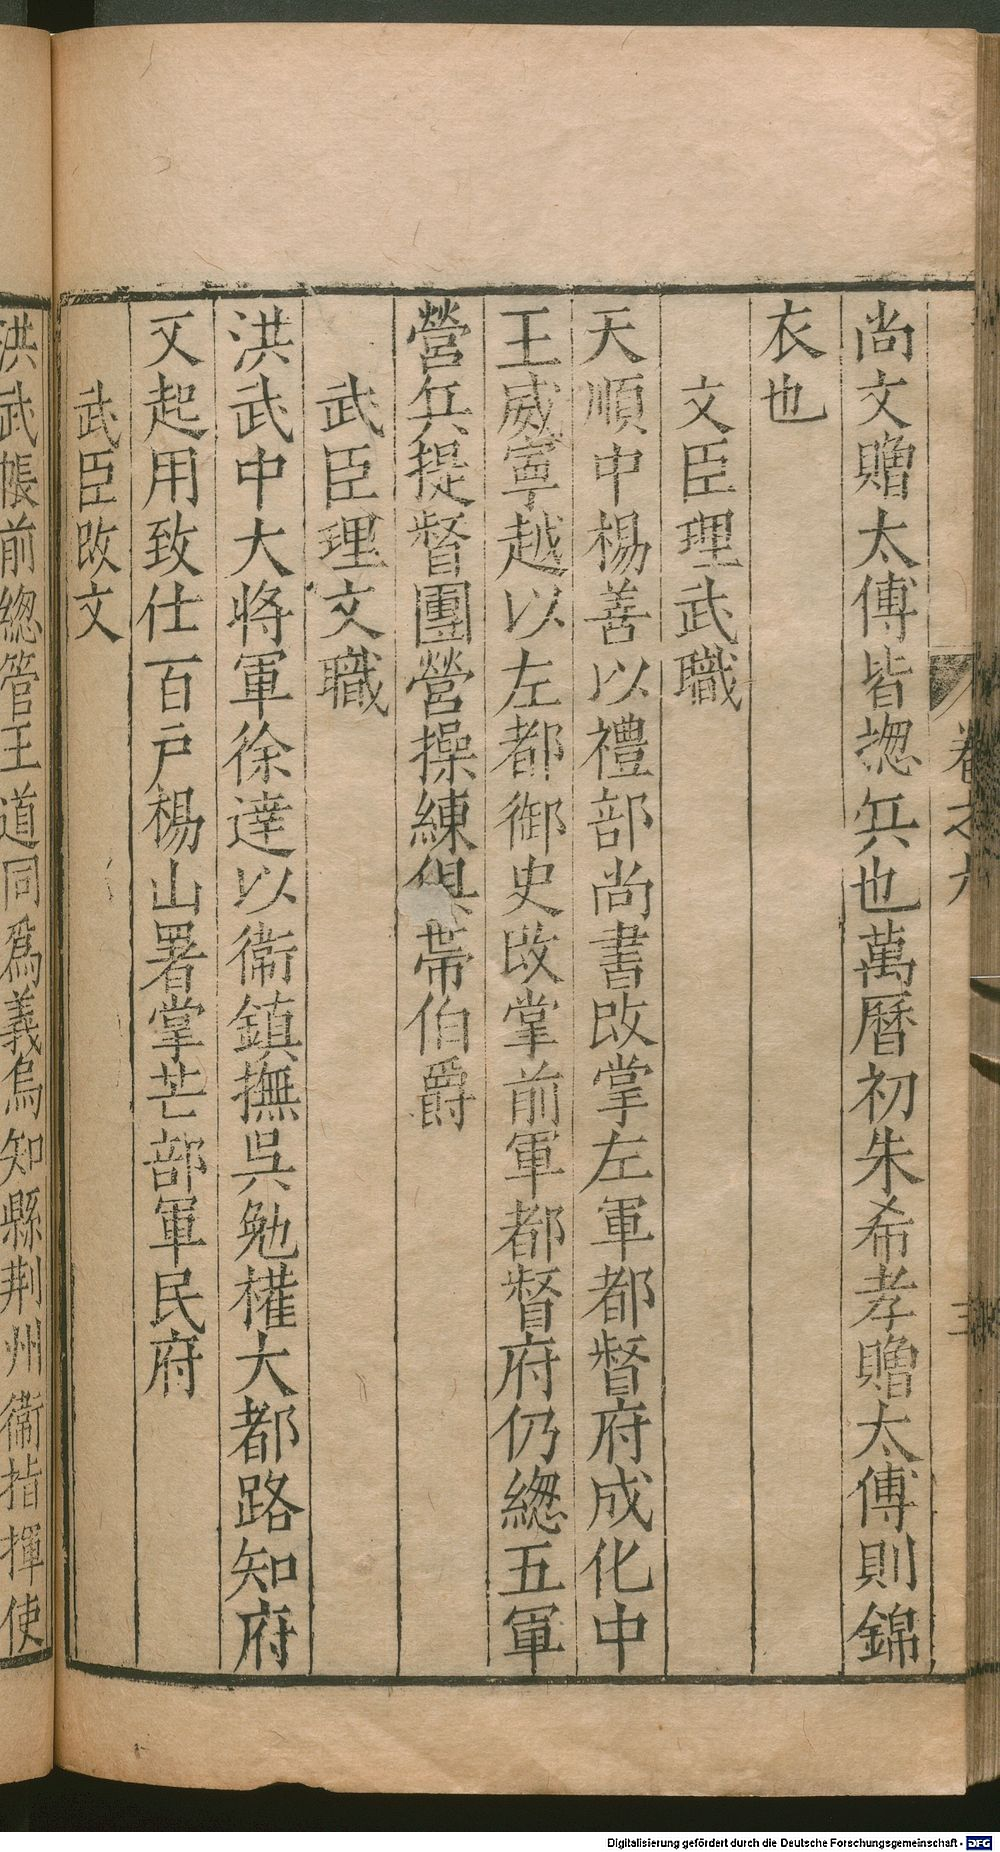 卷之六
尚文贈太傅皆揔兵也萬曆初朱希孝贈太傅則錦
衣也
文臣理武職
天順中楊善以禮部尚書改掌左軍都督府成化中
王威寧越以左都御史改掌前軍都督府仍總五軍
營兵提督團營操練俱帶伯爵
武臣理文職
洪武中大將軍徐達以衞鎮撫吳勉權大都路知府
又起用致仕百戶楊山署掌芒部軍民府
武臣改文
洪武帳前總管王道同為義烏知縣荆州衞指揮使
Digitalisierung gefördert durch die Deutsche Forschungsgemeinschaft - DFG